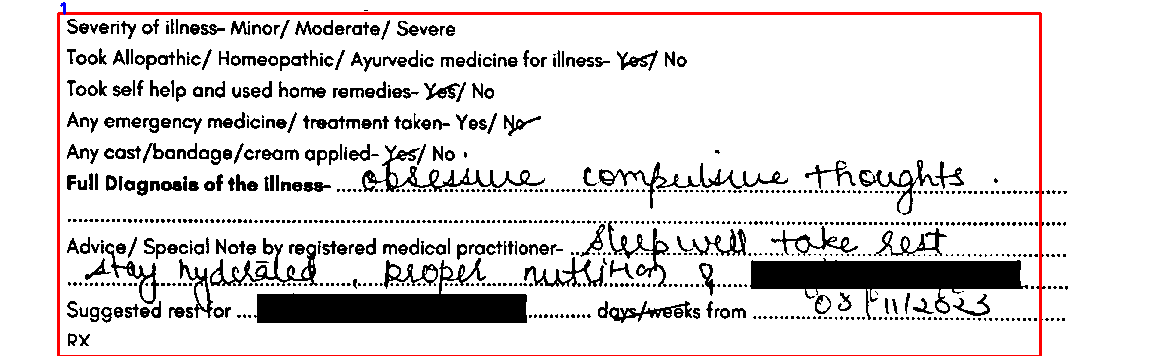 1
Severity of illness- Minor/ Moderate/ Severe
Took Allopathic/ Homeopathic/ Ayurvedic medicine for illness- Yes/ No
Took self help and used home remedies- Yes/ No
Any emergency medicine/ treatment taken- Yes/ No
Any cast/bandage/cream applied- Yes/ No
Full Diagnosis of the illness- obsessive compulsive thoughts.
Advice/ Special Note by registered medical practitioner- Sleep well take rest
stay hyderated, proper nutrition &
Suggested rest for days/weeks from /11/2023
RX